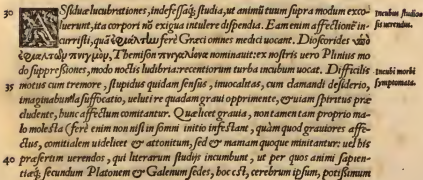 30 ASsiduæ lucubrationes, indefessaq́; studia, ut animũ tuum supra modum exco-
luerunt, ita corpori nõ exigua intulere dispendia. Eam enim affectionẽ in-
Incubus studio
sis uerendus.
curristi, quã ἐφιάλτην ferè Græci omnes medici uocant. Dioscorides ὑπὸ
ἐφιαλτῶν πνιγμὸν, Themison πνιγαλίονα nominauit: ex nostris uero Plinius mo
do suppressiones, modo noctis ludibria: recentiorum turba incubum uocat. Difficilis
Incubi morbi
symptomata.
35 motus cum tremore, stupidus quidam sensus, inuocalitas, cum clamandi desiderio,
imaginabunda suffocatio, ueluti re quadam graui opprimente, & uiam spiritus præ
cludente, hunc affectum comitantur. Quæ licet grauia, non tam et tam proprio ma-
lo molesta (ferè enim non nisi in somni initio infestant, quàm quod grauiores affe-
ctus, comitialem uidelicet & attonitum, sed & maniam quoque minitantur: uel his
40 præsertim uerendos, qui literarum studijs incumbunt, ut per quos animi sapien-
tiæq́; secundum Platonem & Galenum sedes, hoc est, cerebrum ipsum, potißimum